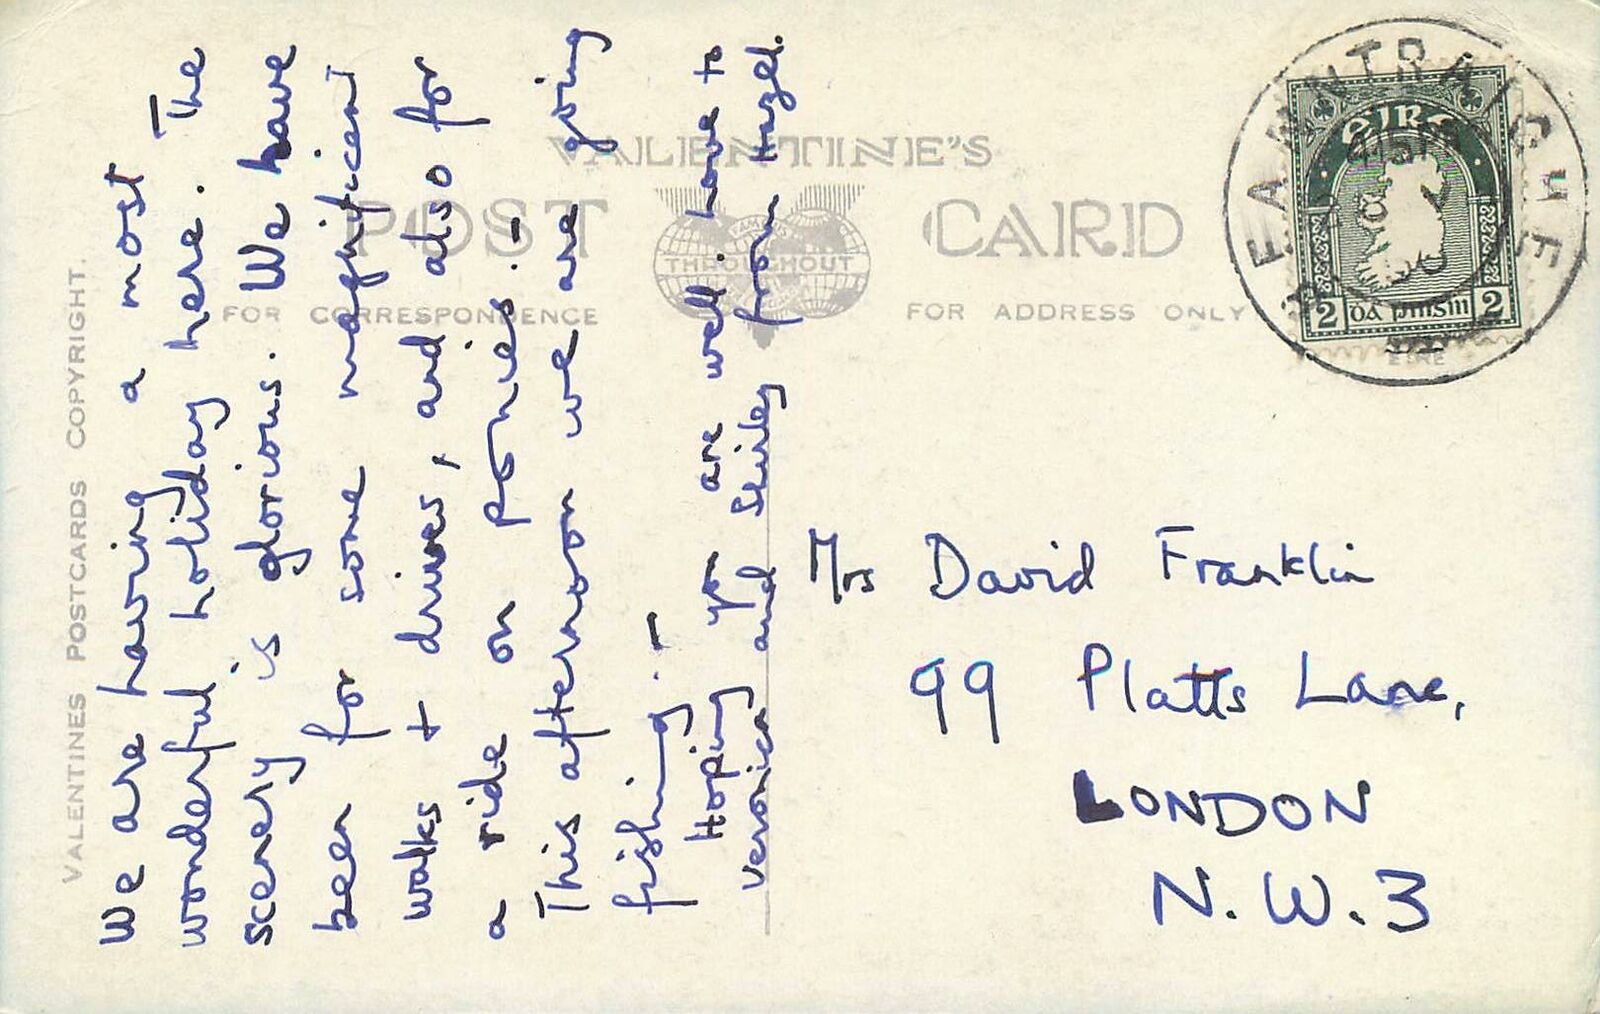 VALENTINES POSTCARDS COPYRIGHT.
VALENTINE'S
POST CARD
FAMOUS
THROUGHOUT
FOR CORRESPONDENCE
FOR ADDRESS ONLY
We are having a most
wonderful holiday here. The
scenery is glorious. We have
been for some magnificent
walks + drives, and also for
a ride on ponies. -
This afternoon we are going
fishing. -
Hoping you are well. love to
Veronica and from Hazel.
BEANNTRAIGHE
EIRE
éire
2 dá pinsin 2
Mrs David Franklin
99 Platts Lane,
LONDON
N.W.3